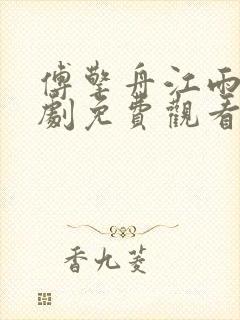 傅擎舟江雨
劇免費觀看
香九菱